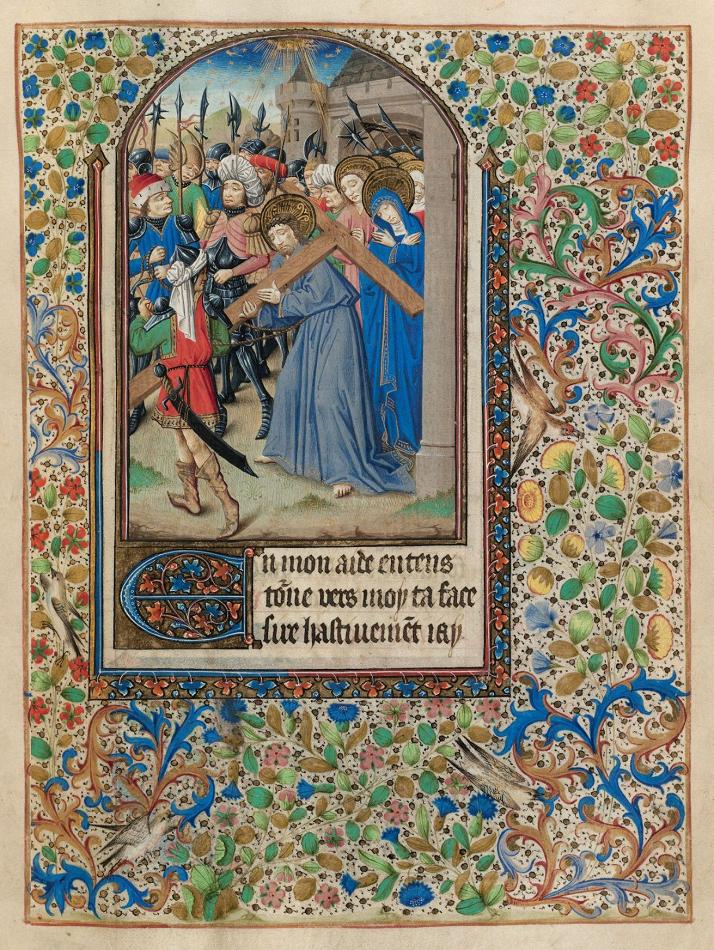 En mon aide entens
tõne vers moy ta face
sire hastivemẽt iay